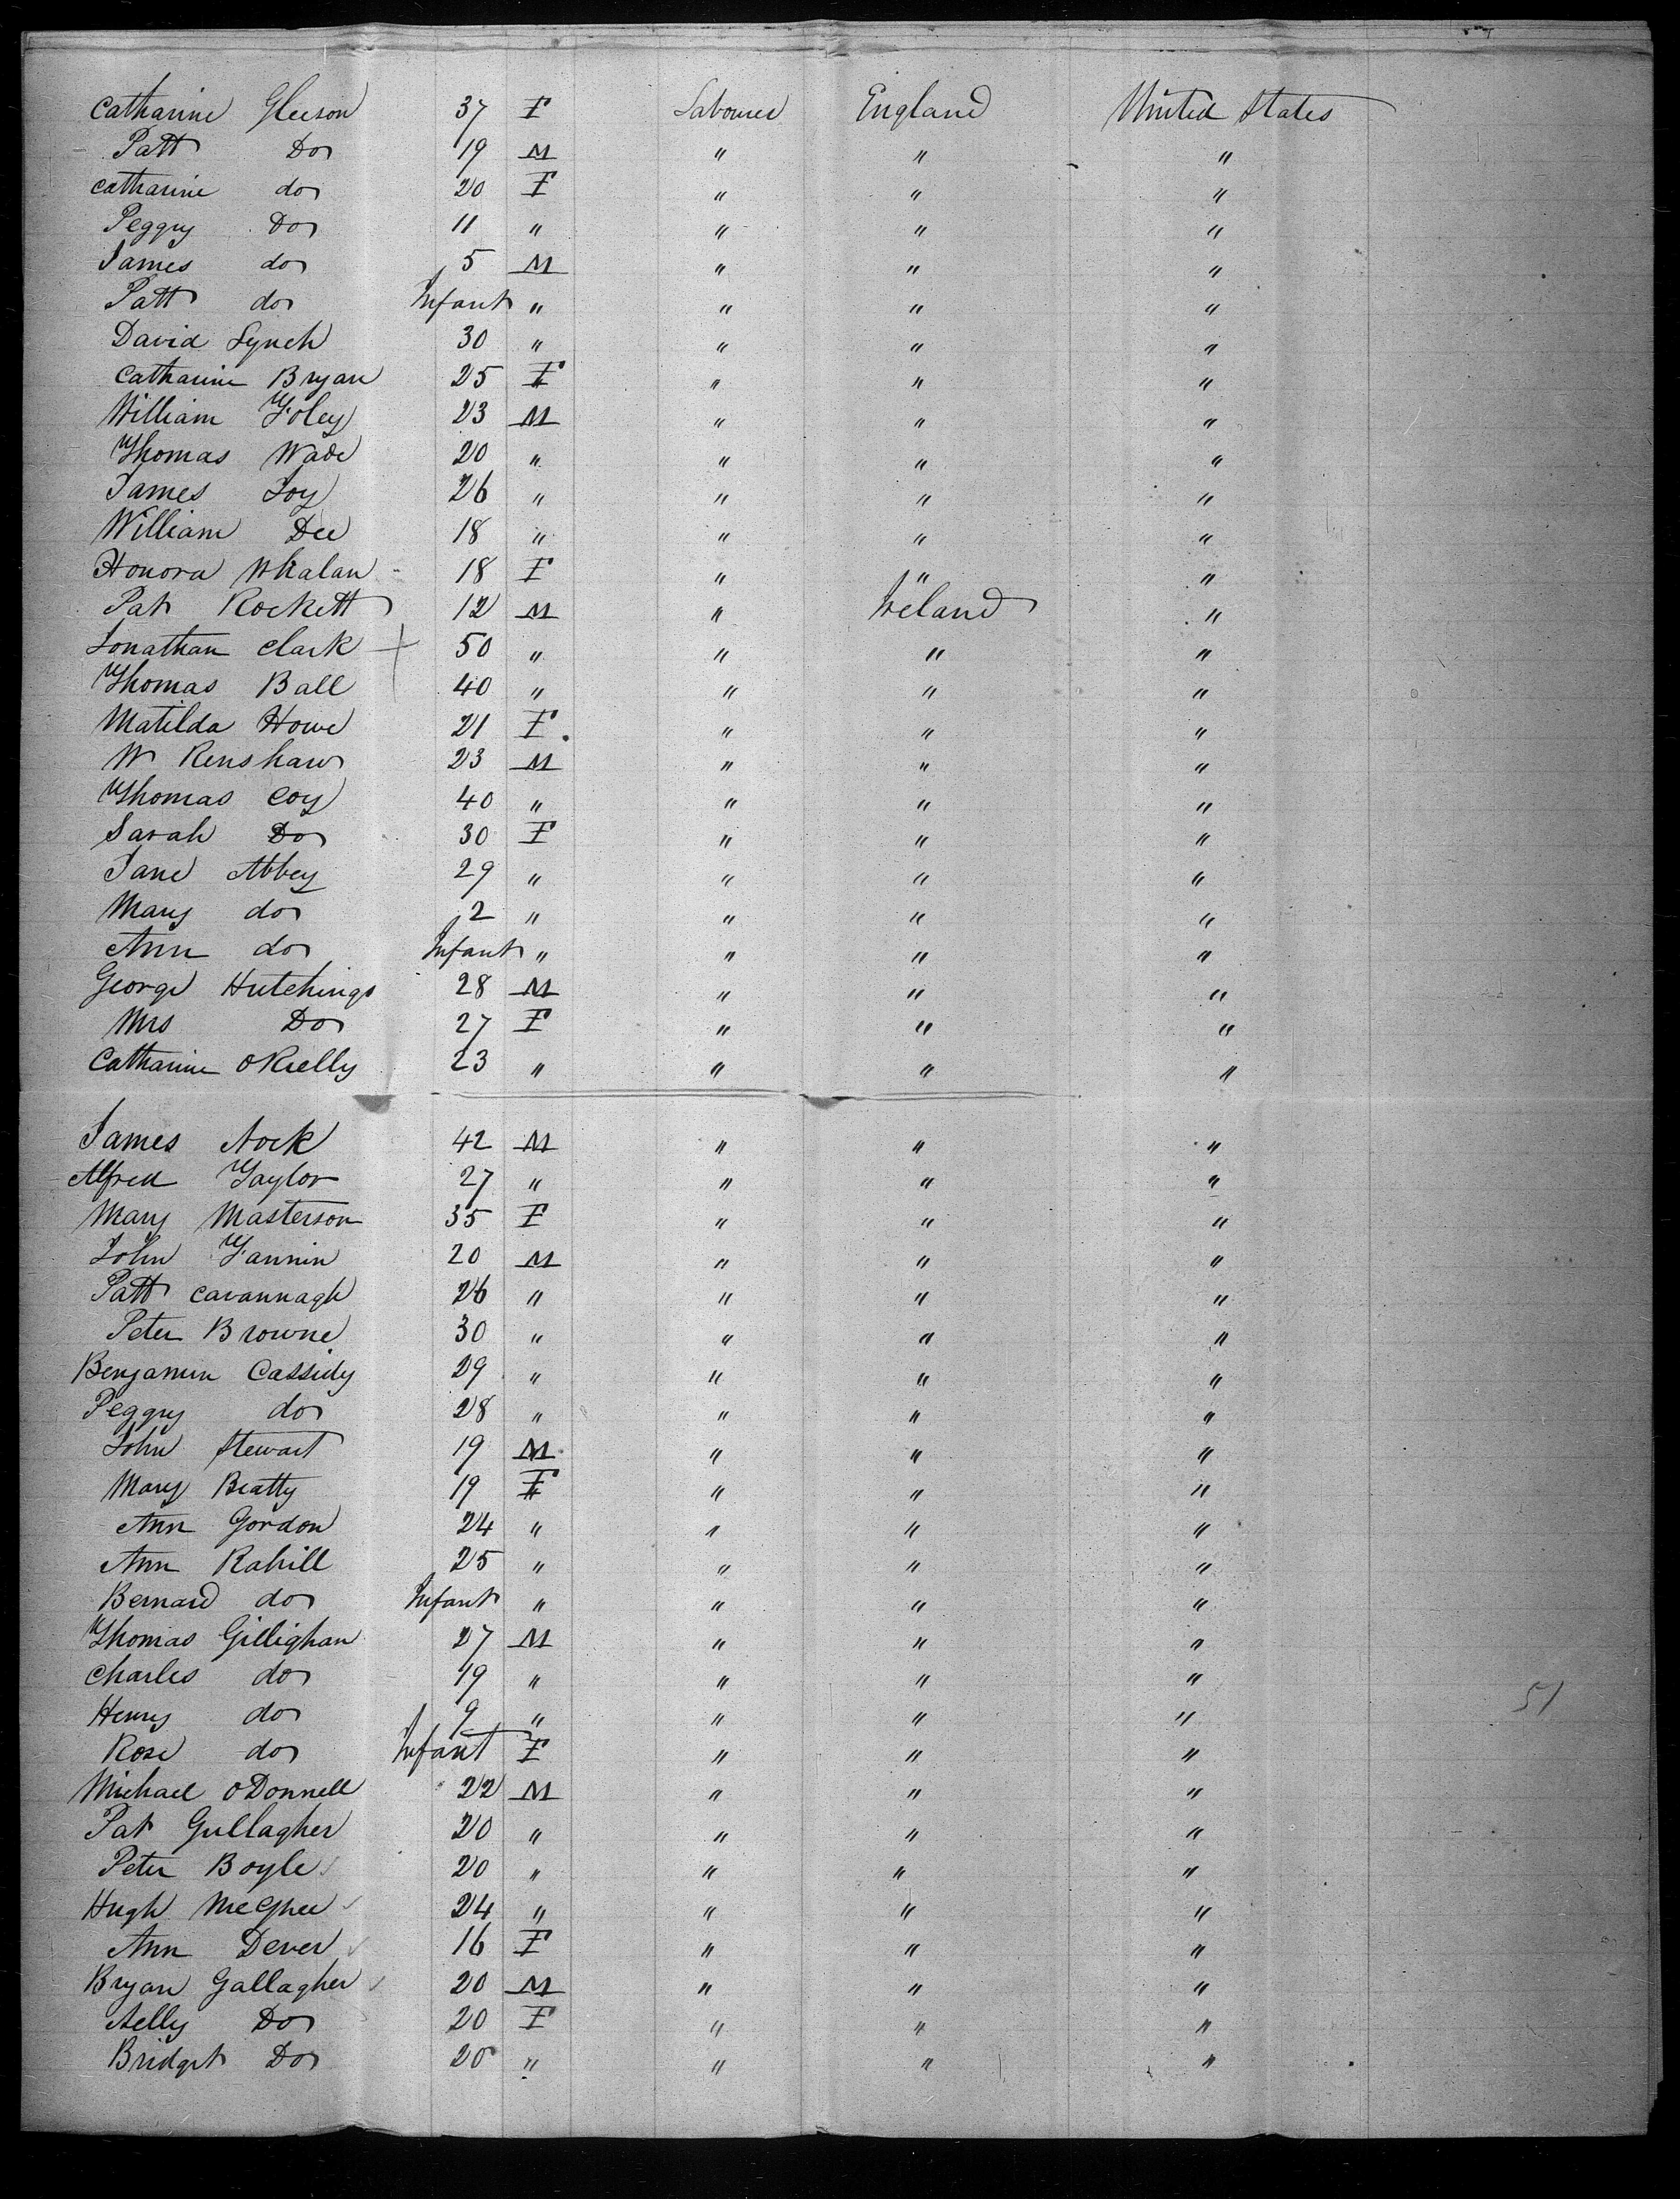 Catharine Gleeson 37 F Labourer England United States
Patt Do 19 M " " "
Catharine do 20 F " " "
Peggy Do 11 " " " "
James do 5 M " " "
Patt do Infant " " " "
David Lynch 30 " " " "
Catharine Bryan 25 F " " "
William Foley 23 M " " "
Thomas Wade 20 " " " "
James Joy 26 " " " "
William Dee 18 " " " "
Honora Whalan 18 F " " "
Pat Rockett 12 M " Ireland "
Jonathan Clark 50 " " " "
Thomas Ball 40 " " " "
Matilda Howe 21 F " " "
W Renshaw 23 M " " "
Thomas Coy 40 " " " "
Sarah Do 30 F " " "
Jane Abbey 29 " " " "
Mary do 2 " " " "
Ann do Infant " " " "
George Hutchings 28 M " " "
Mrs Do 27 F " " "
Catharine O Rielly 23 " " " "
James Nock 42 M " " "
Alfred Taylor 27 " " " "
Mary Masterson 35 F " " "
John Fannin 20 M " " "
Patt Cavannagh 26 " " " "
Peter Browne 30 " " " "
Benjamin Cassidy 29 " " " "
Peggy do 28 " " " "
John Stewart 19 M " " "
Mary Beatty 19 F " " "
Ann Gordon 24 " " " "
Ann Rahill 25 " " " "
Bernard do Infant " " " "
Thomas Gillighan 27 M " " "
Charles do 19 " " " "
Henry do 9 " " " "
51
Rose do Infant F " " "
Michael O Donnell 22 M " " "
Pat Gullagher 20 " " " "
Peter Boyle 20 " " " "
Hugh McGhee 24 " " " "
Ann Dever 16 F " " "
Bryan Gallagher 20 M " " "
Nelly Do 20 F " " "
Bridget Do 20 " " " "